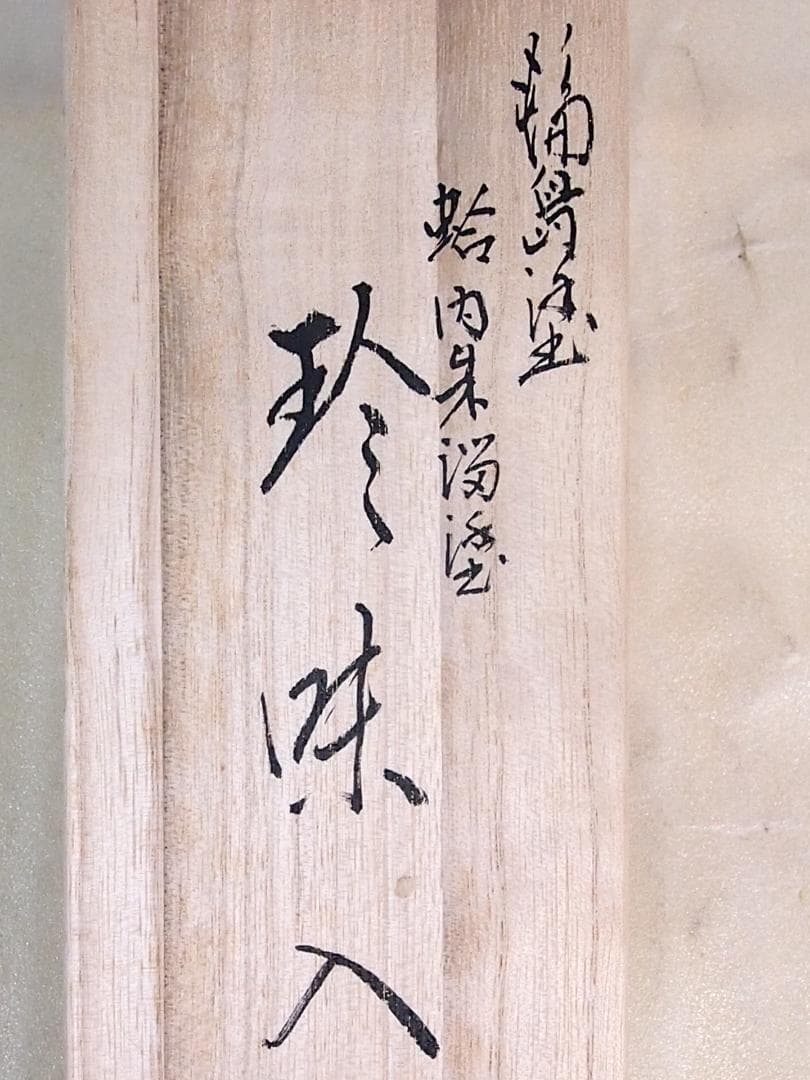 輪島塗
蛤内朱溜塗
珍味入